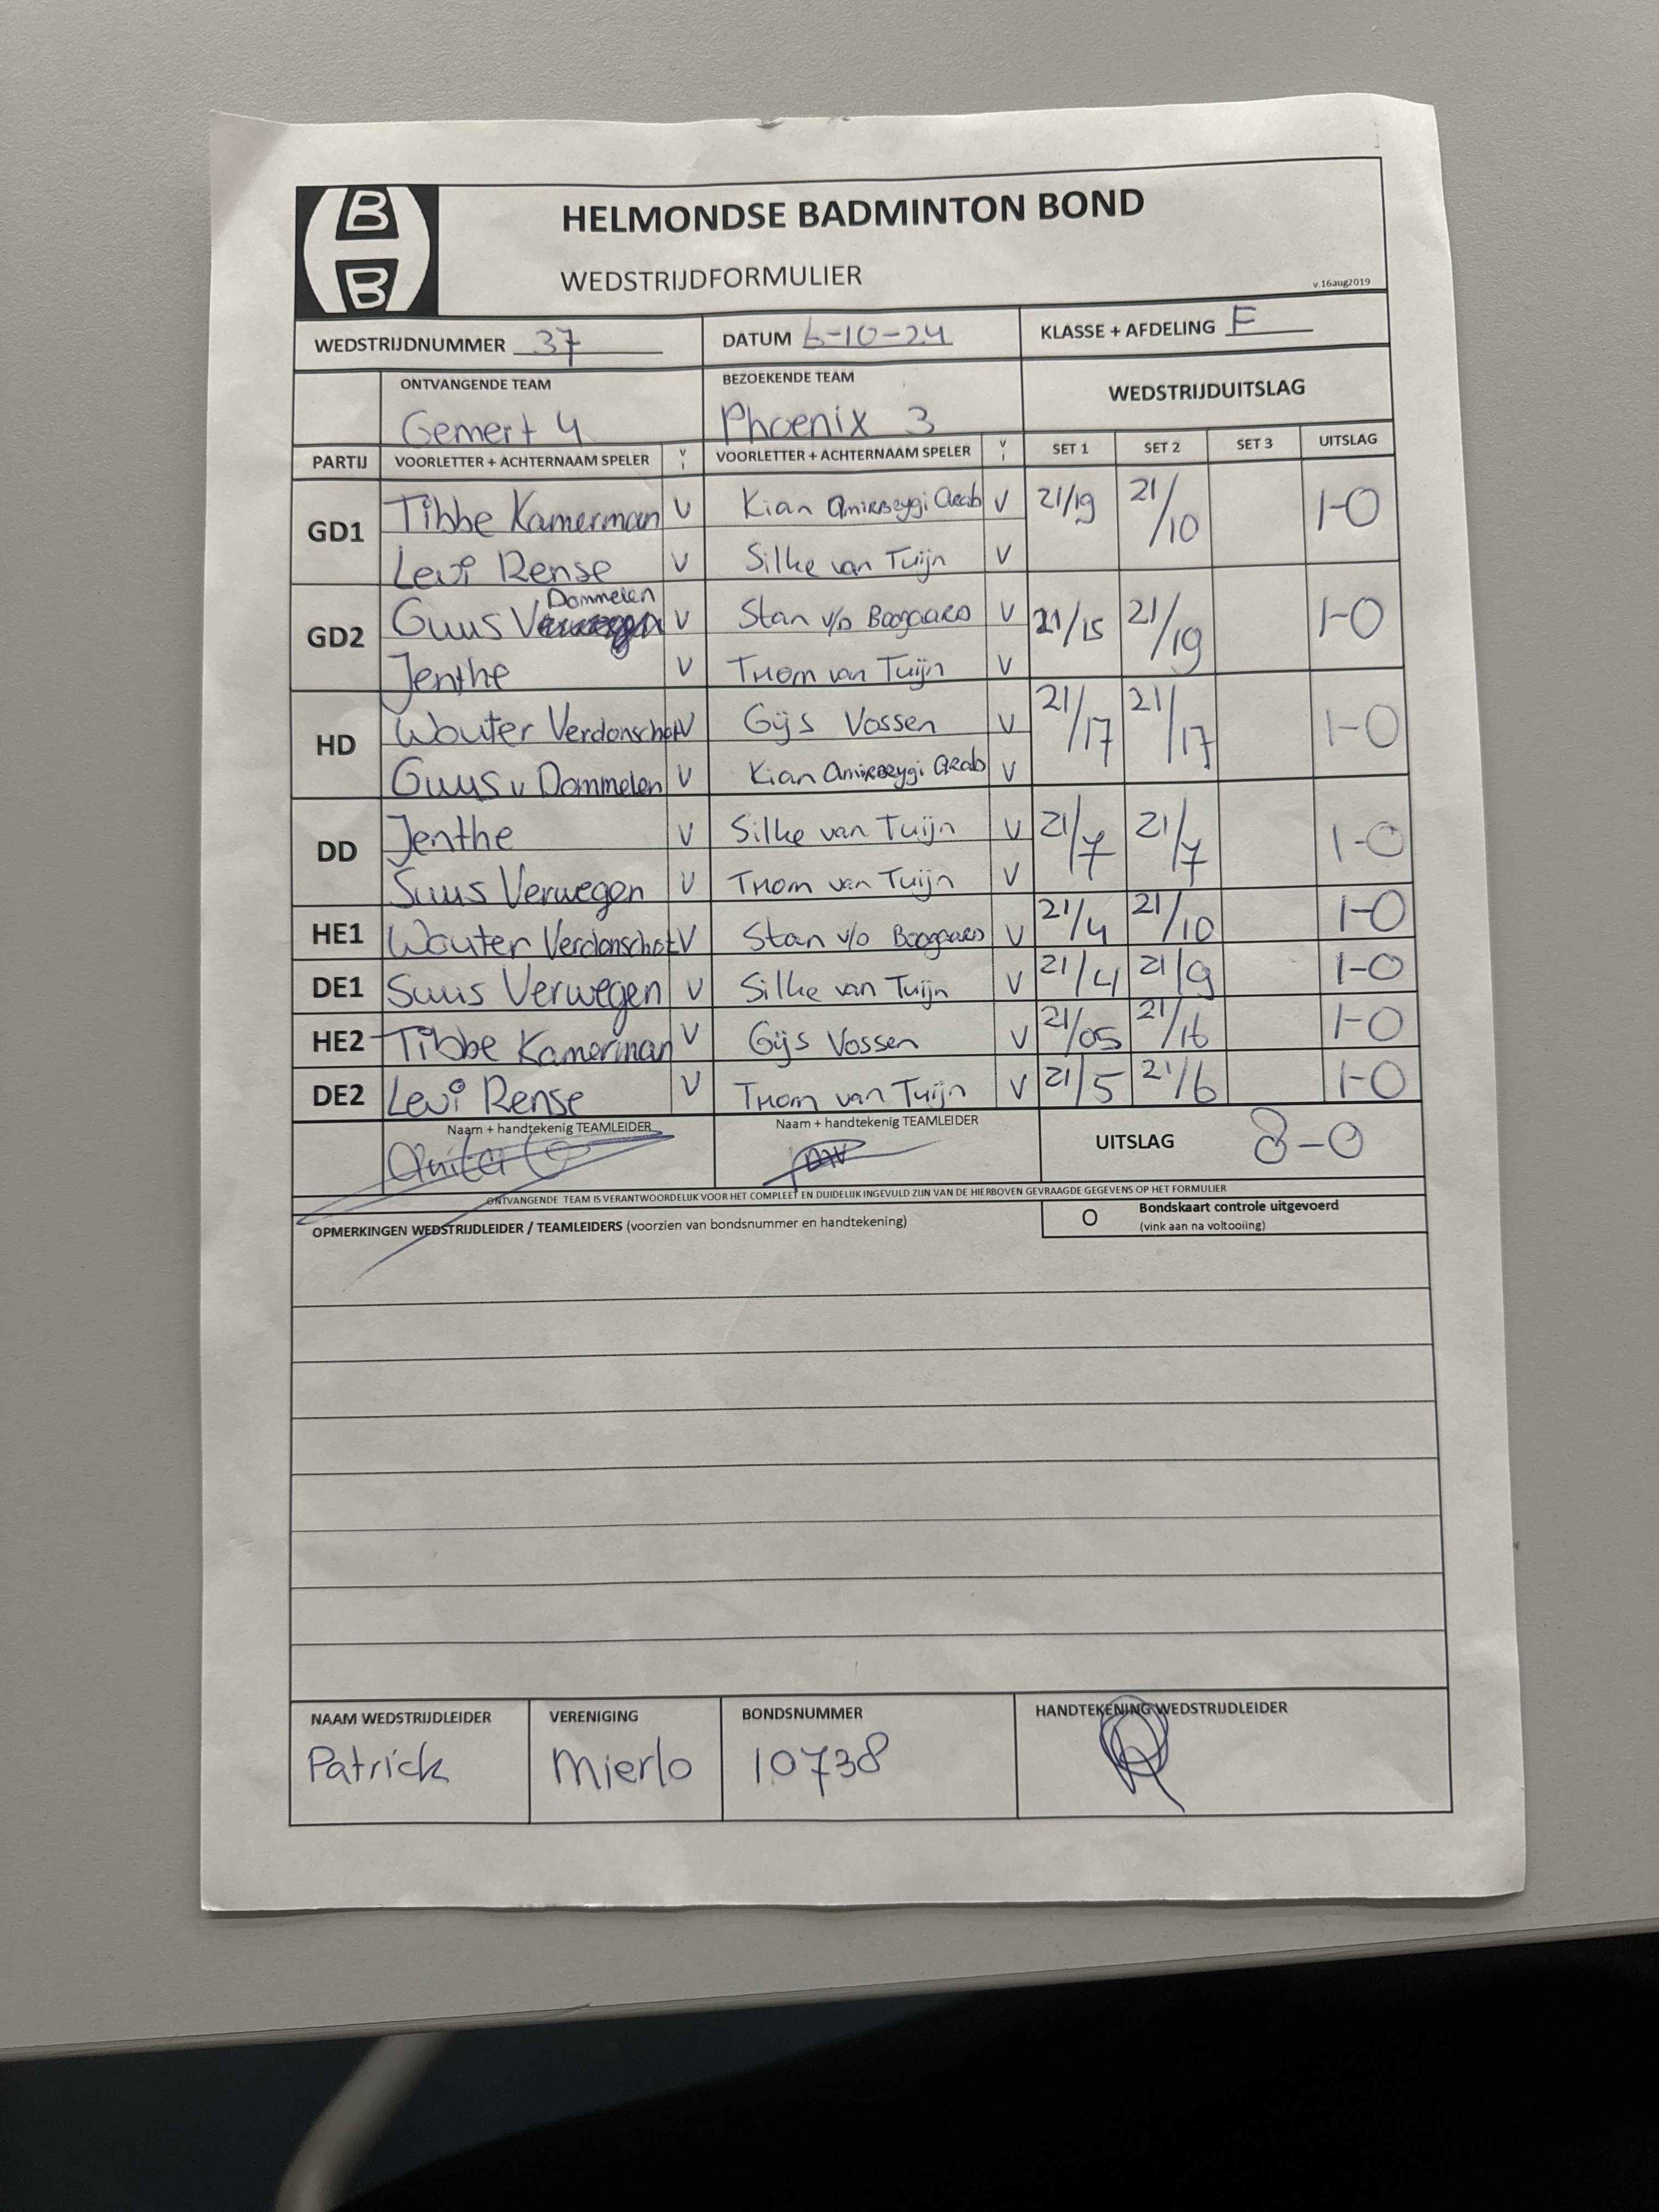 B
B
HELMONDSE BADMINTON BOND
WEDSTRIJDFORMULIER
v.16aug2019
WEDSTRIJDNUMMER 37 DATUM 6-10-24 KLASSE + AFDELING F
ONTVANGENDE TEAM BEZOEKENDE TEAM WEDSTRIJDUITSLAG
Gemert 4 Phoenix 3
PARTIJ VOORLETTER + ACHTERNAAM SPELER V I VOORLETTER + ACHTERNAAM SPELER V I SET 1 SET 2 SET 3 UITSLAG
GD1 Tibbe Kamerman V Kian Amirbeygi Arab V 21/19 21/10 1-0
Levi Rense V Silke van Tuijn V
GD2 Guus V Dommelen V Stan v/d Boogaard V 21/15 21/19 1-0
Jenthe V Thom van Tuijn V
HD Wouter Verdonschot V Gijs Vossen V 21/17 21/17 1-0
Guus v Dommelen V Kian Amirbeygi Arab V
DD Jenthe V Silke van Tuijn V 21/7 21/7 1-0
Suus Verwegen V Thom van Tuijn V
HE1 Wouter Verdonschot V Stan v/d Boogaard V 21/4 21/10 1-0
DE1 Suus Verwegen V Silke van Tuijn V 21/4 21/9 1-0
HE2 Tibbe Kamerman V Gijs Vossen V 21/05 21/16 1-0
DE2 Levi Rense V Thom van Tuijn V 21/5 21/6 1-0
Naam + handtekenig TEAMLEIDER Naam + handtekenig TEAMLEIDER UITSLAG 8-0
ONTVANGENDE TEAM IS VERANTWOORDELIJK VOOR HET COMPLEET EN DUIDELIJK INGEVULD ZIJN VAN DE HIERBOVEN GEVRAAGDE GEGEVENS OP HET FORMULIER
OPMERKINGEN WEDSTRIJDLEIDER / TEAMLEIDERS (voorzien van bondsnummer en handtekening)
O Bondskaart controle uitgevoerd
(vink aan na voltooiing)
NAAM WEDSTRIJDLEIDER VERENIGING BONDSNUMMER HANDTEKENING WEDSTRIJDLEIDER
Patrick Mierlo 10738